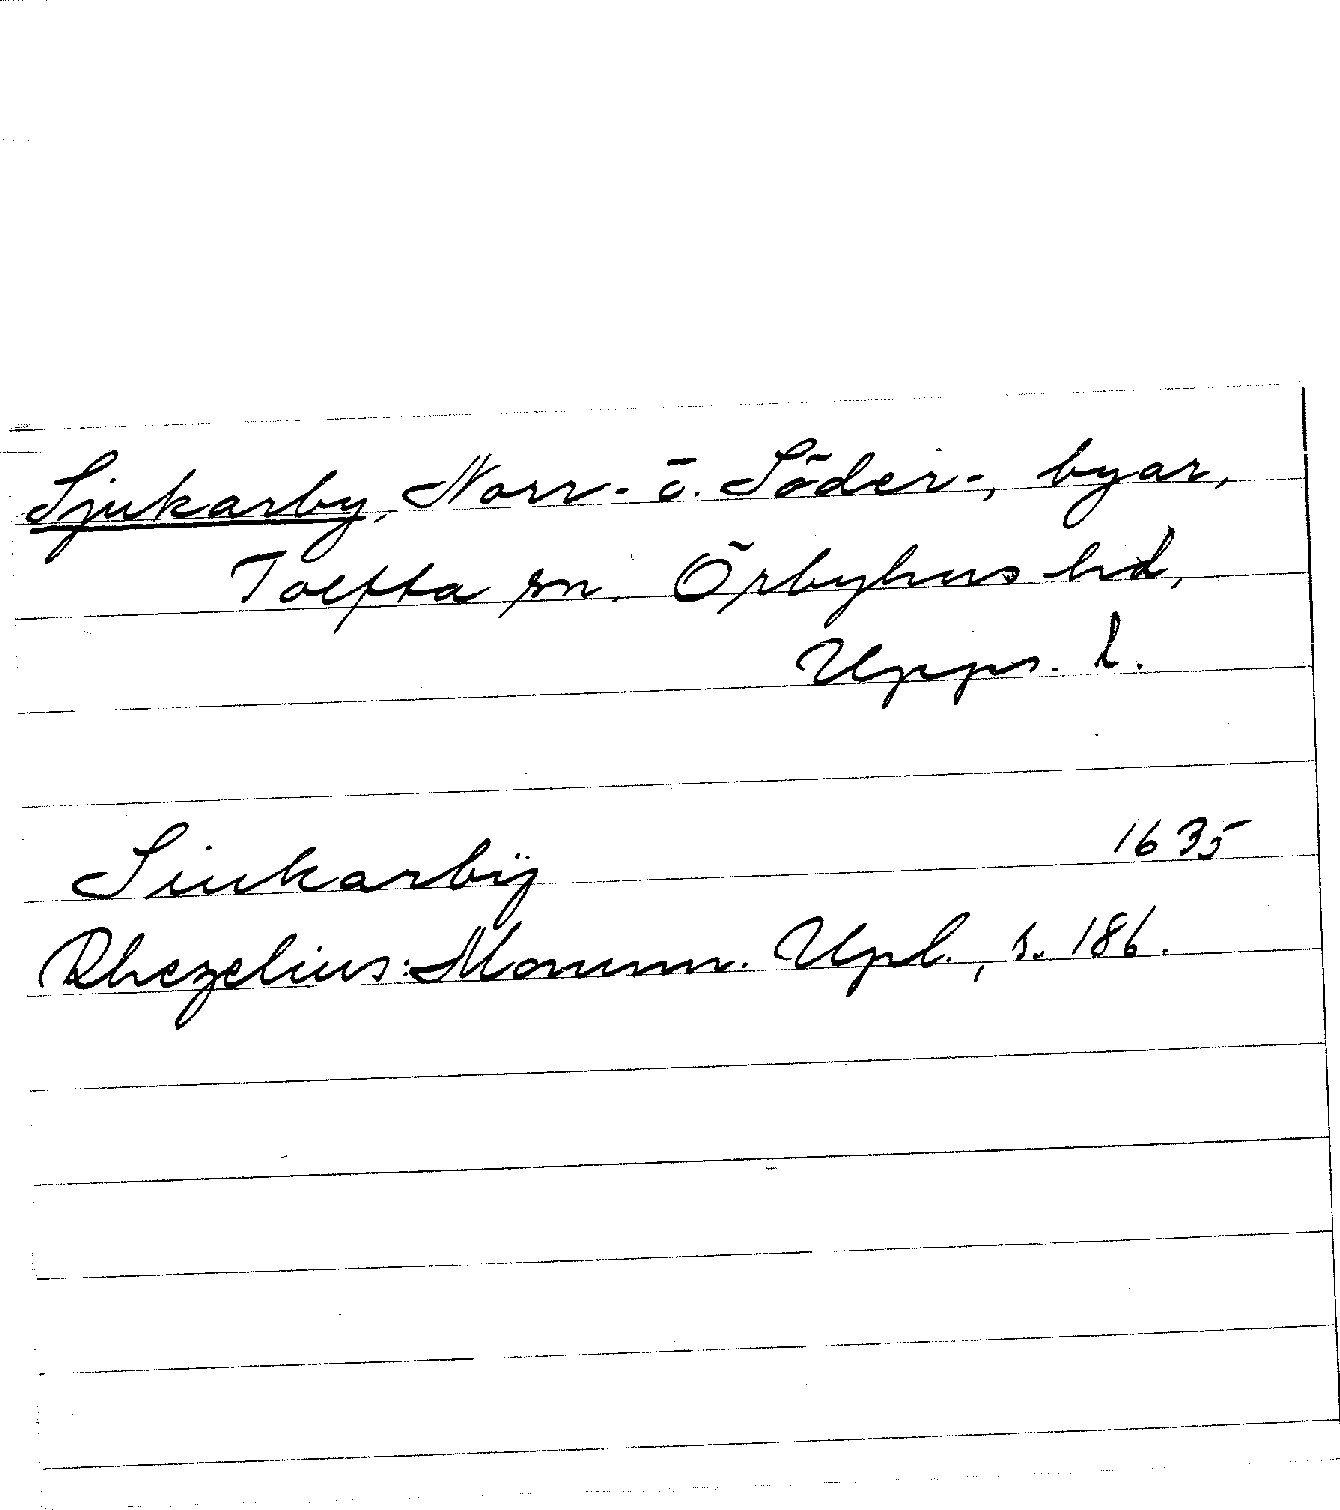 Sjukarby, Norr- ö. Söder-, byar,
Tolfta sn. Örbyhus hd,
Upps. l.
Siukarbÿ 1635
Rhezelius: Monum. Upl., s. 186.